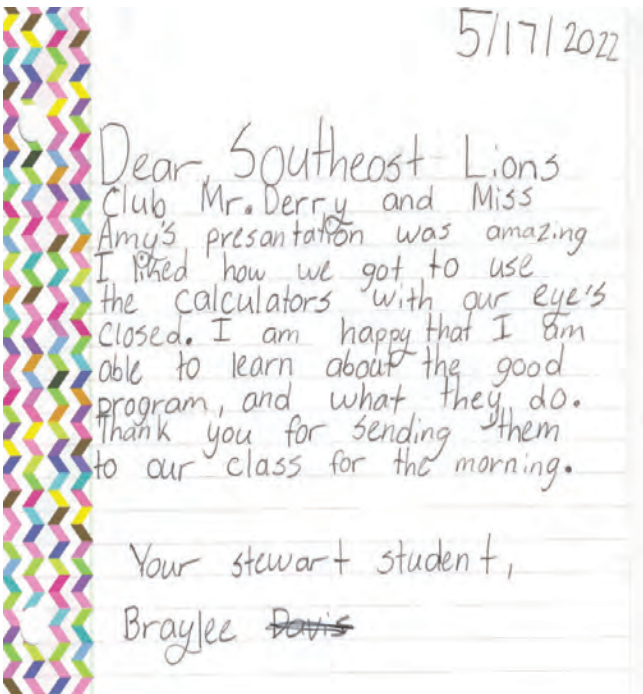 5/17/2022
Dear, Southeast Lions
Club Mr. Derry and Miss
Amy's presantation was amazing
I liked how we got to use
the calculators with our eye's
closed. I am happy that I am
able to learn about the good
program, and what they do.
Thank you for sending them
to our class for the morning.
Your stewart student,
Braylee